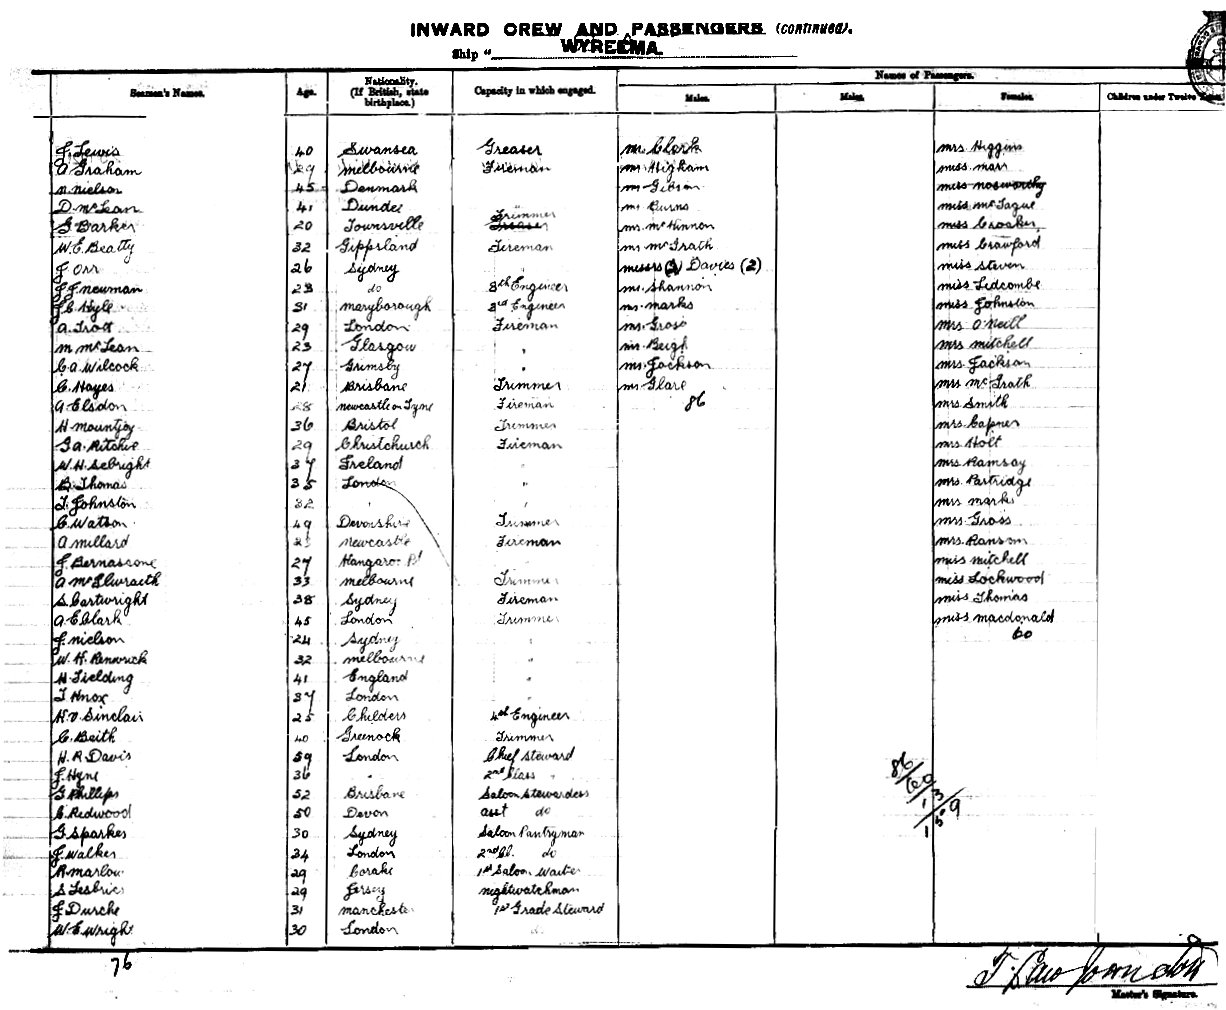 INWARD CREW AND PASSENGERS (continued).
Ship "WYREEMA.
Names of Passengers.
Seamen's Names. Age. Nationality. (If British, state birthplace.) Capacity in which engaged. Males. Males. Females. Children under Twelve
J. Lewis 40 Swansea Greaser mr Clark mrs Higgins
A Graham 29 melbourne Fireman mr Higham miss marr
n. nielson 45 Denmark mr Gibson miss nosworthy
D. mcLean 41 Dundee mr Burns miss mcTague
G Barker 20 Townsville Trimmer Greaser mr mcKinnon miss Croaker
W. E. Beatty 32 Gippsland Fireman mr mcGrath miss Crawford
J Orr 26 Sydney messrs (2) Davies (2) miss Steven
J. J. newman 23 do 8th Engineer mr Shannon miss Lidcombe
J. C. Hyle 31 maryborough 3rd Engineer mr marks miss Johnston
A Trott 29 London Fireman mr Gross mrs O'neill
m mcLean 23 Glasgow " mr Beigh mrs mitchell
C. A. Wilcock 27 Grimsby " mr Jackson mrs Jackson
C. Hayes 21 Brisbane Trimmer mr Glare mrs mcGrath
A Elsdon 28 newcastle on Tyne Fireman 86 mrs Smith
H mountjoy 36 Bristol Trimmer mrs Capner
G. A. Ritchie 29 Christchurch Fireman mrs Holt
W. H. Sebright 37 Ireland " mrs Ramsay
B. Thomas 35 London " mrs Partridge
T. Johnston 32 " " mrs marks
C. Watson 49 Devonshire Trimmer mrs Gross
A millard newcastle Fireman mrs Ranson
J. Bernassone 27 Kangaroo Pt miss mitchell
A mcIlwraith 33 melbourne Trimmer miss Lockwood
S. Cartwright 38 Sydney Fireman miss Thomas
A. E Clark 45 London Trimmer miss macdonald
J. nielson 24 Sydney " 60
W. H. Renwick 32 melbourne "
H. Fielding 41 England "
T Knox 37 London "
H. V. Sinclair 25 Childers 4th Engineer
C. Beith 40 Greenock Trimmer
H. R Davis 59 London Chief Steward
J. Hyne 36 " 2nd Class "
G Phillips 52 Brisbane Saloon Stewardess
C. Redwood 50 Devon asst do
G Sparkes 30 Sydney Saloon Pantryman
J. Walker 34 London 2nd Cl. do
R. marlow 29 Coraki 1st Saloon Waiter
S Lesbrie 29 Jersey nightwatchman
J Durche 31 manchester 1st Grade Steward
W. E Wright 30 London do
86/60/1
3/3/9
76
Master's Signature.